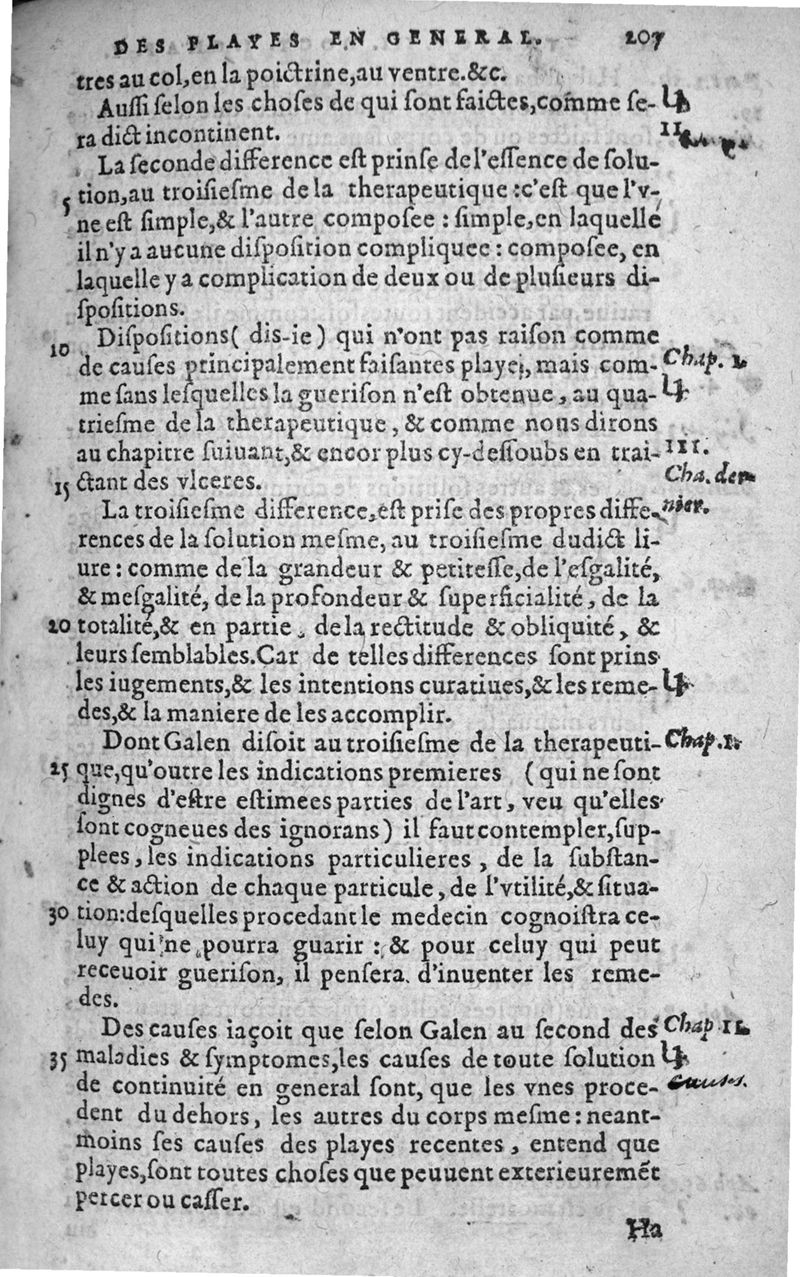 DES PLAYES EN GENERAL. 207
tres au col, en la poictrine, au ventre. &c.
Auſſi ſelon les choſes de qui ſont faictes, comme ſe-
ra dict incontinent. II.
La ſeconde difference eſt prinſe de l'eſſence de ſolu-
5 tion, au troiſieſme de la therapeutique : c'eſt que l'v-
ne eſt ſimple, & l'autre compoſee : ſimple, en laquelle
il n'y a aucune diſpoſition compliquee : compoſee, en
laquelle y a complication de deux ou de pluſieurs di-
ſpoſitions.
10 Diſpoſitions ( dis-ie ) qui n'ont pas raiſon comme
de cauſes principalement faiſantes playe, mais com- Chap. 1.
me ſans leſquelles la gueriſon n'eſt obtenue, au qua-
trieſme de la therapeutique, & comme nous dirons
au chapitre ſuiuant, & encor plus cy-deſſoubs en trai- III.
15 ctant des vlceres. Cha. der-
La troiſieſme difference, eſt priſe des propres diffe- nier.
rences de la ſolution meſme, au troiſieſme dudict li-
ure : comme de la grandeur & petiteſſe, de l'eſgalité,
& meſgalité, de la profondeur & ſuperficialité, de la
20 totalité, & en partie, de la rectitude & obliquité, &
leurs ſemblables. Car de telles differences ſont prins
les iugements, & les intentions curatiues, & les reme-
des, & la maniere de les accomplir.
Dont Galen diſoit au troiſieſme de la therapeuti- Chap. 1.
25 que, qu'outre les indications premieres ( qui ne ſont
dignes d'eſtre eſtimees parties de l'art, veu qu'elles
ſont cogneues des ignorans ) il faut contempler, ſup-
plees, les indications particulieres, de la ſubſtan-
ce & action de chaque particule, de l'vtilité, & ſitua-
30 tion : deſquelles procedant le medecin cognoiſtra ce-
luy qui ne pourra guarir : & pour celuy qui peut
receuoir gueriſon, il penſera d'inuenter les reme-
des.
Des cauſes iaçoit que ſelon Galen au ſecond des Chap II.
35 maladies & ſymptomes, les cauſes de toute ſolution
de continuité en general ſont, que les vnes proce- Cauſes.
dent du dehors, les autres du corps meſme : neant-
moins ſes cauſes des playes recentes, entend que
playes, ſont toutes choſes que peuuent exterieuremẽt
percer ou caſſer.
Ha